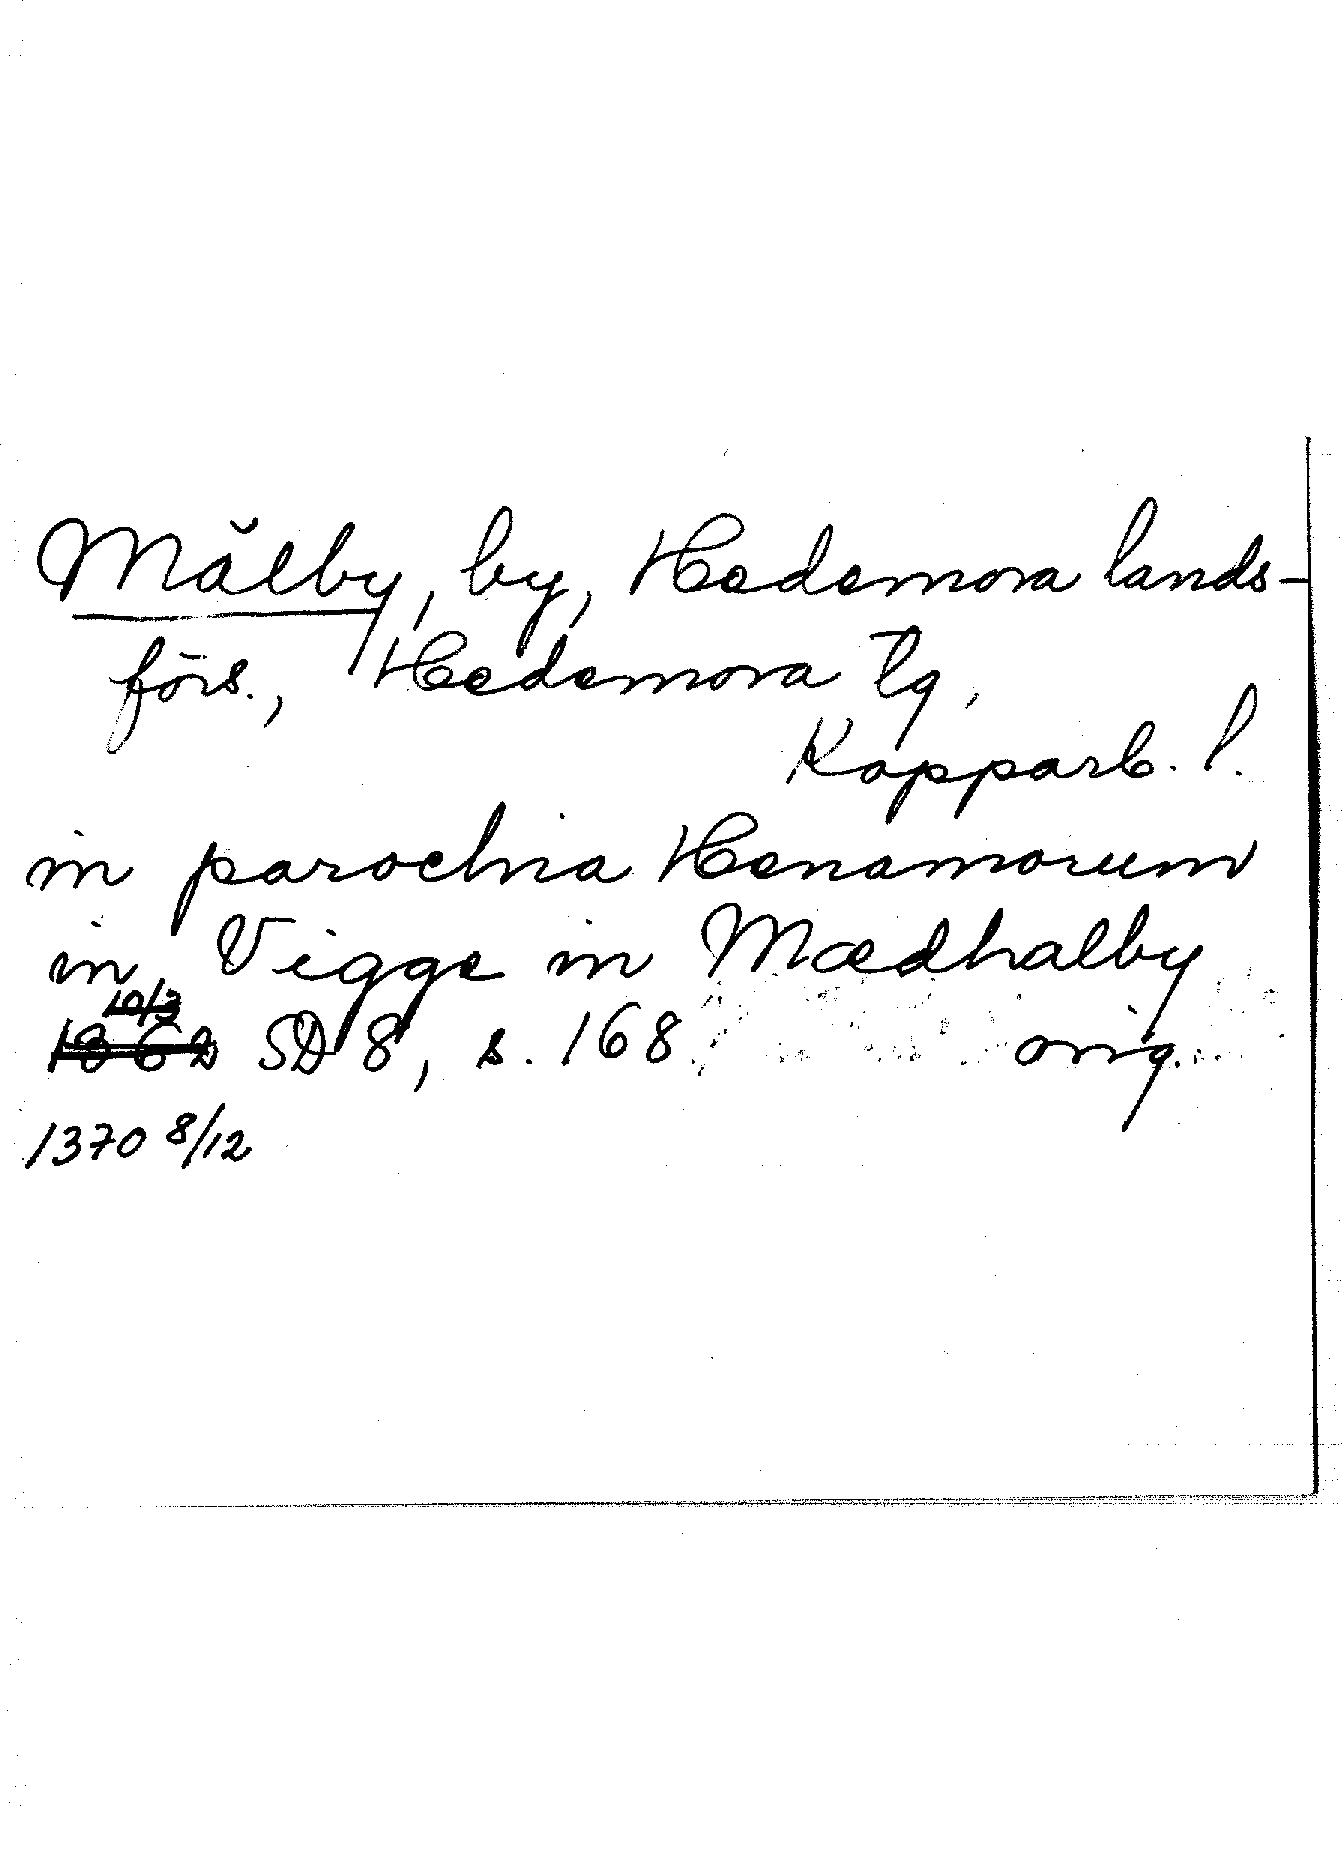 Målby, by, Hedemora lands-
förs., Hedemora tg,
Kopparb. l.
in parochia Henamorum
in Vigge in Mædhalby
10/3
1362 SD 8, s. 168 orig.
1370 8/12